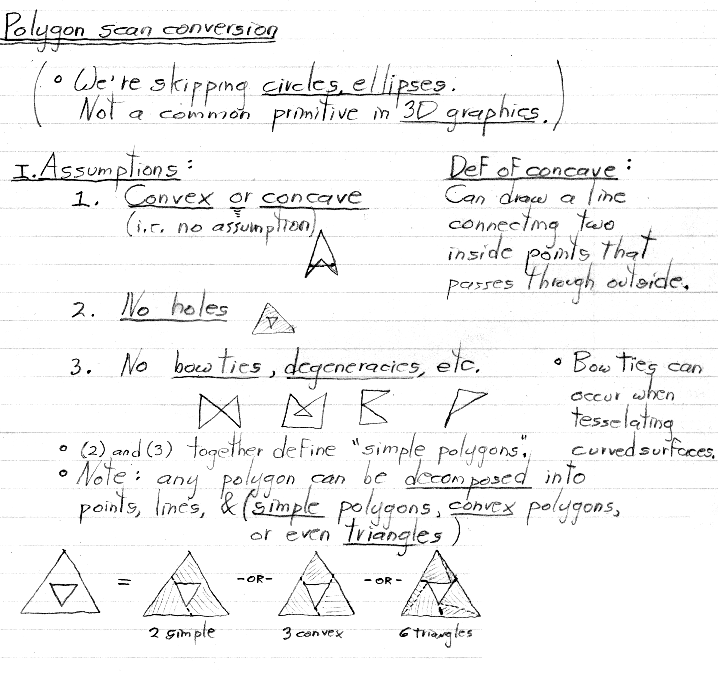 Polygon scan conversion
( • We're skipping circles, ellipses.
Not a common primitive in 3D graphics. )
I. Assumptions:
1. Convex or concave
(i.e. no assumption)
Def of concave:
Can draw a line
connecting two
inside points that
passes through outside.
2. No holes
3. No bow ties, degeneracies, etc.
• Bow ties can
occur when
tesselating
curved surfaces.
• (2) and (3) together define "simple polygons".
• Note: any polygon can be decomposed into
points, lines, & (simple polygons, convex polygons,
or even triangles)
= -OR- -OR-
2 simple 3 convex 6 triangles